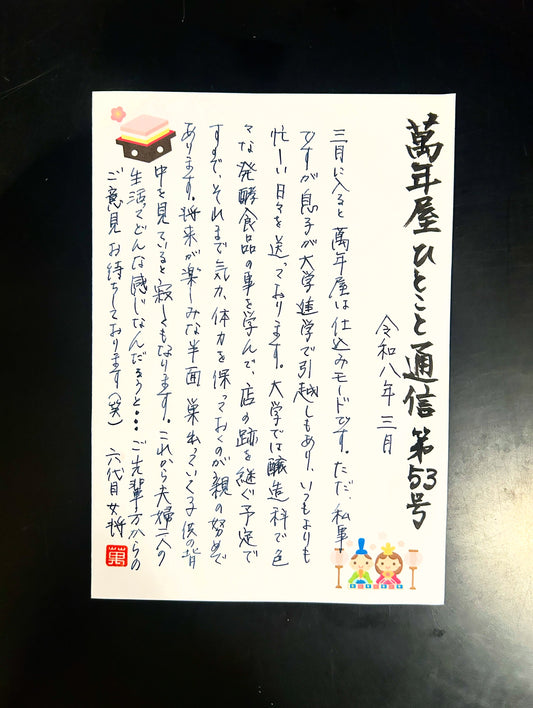 萬年屋ひとこと通信 第53号
令和八年 三月
三月に入ると萬年屋は仕込みモードです。ただ、私事
ですが息子が大学進学で引越しもあり、いつもよりも
忙しい日々を送っております。大学では醸造科で色
々な発酵食品の事を学んで、店の跡を継ぐ予定で
すまで、それまで気力、体力を保っておくのが親の努めで
あります。将来が楽しみな半面 巣立っていく子供の背
中を見ていると寂しくもなります。これから夫婦二人の
生活ってどんな感じなんだろうと・・・ご先輩方からの
ご意見お待ちしております(笑) 六代目女将
萬